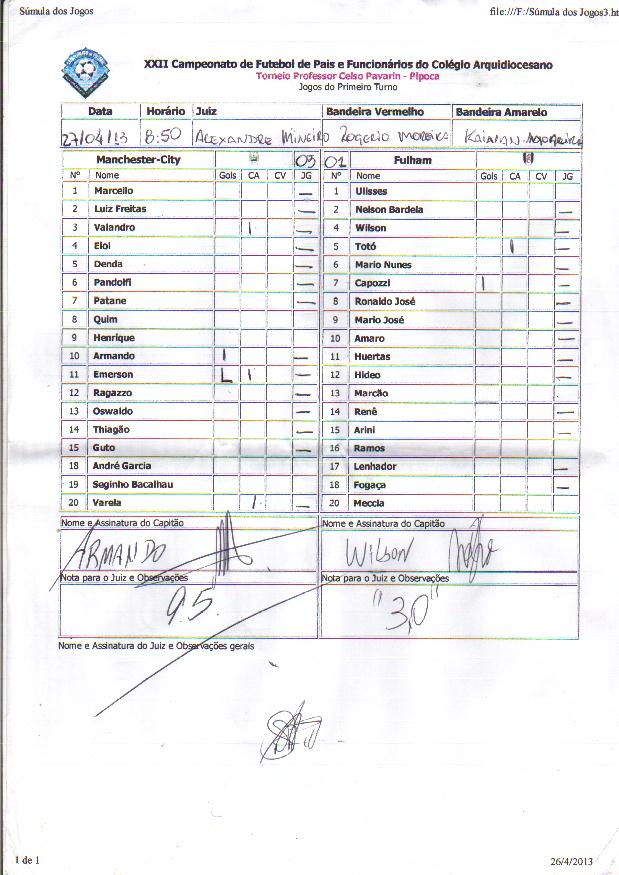 Súmula dos Jogos file:///F:/Súmula dos Jogos3.ht
XXII Campeonato de Futebol de Pais e Funcionários do Colégio Arquidiocesano
Torneio Professor Celso Pavarin - Pipoca
Jogos do Primeiro Turno
Data Horário Juiz Bandeira Vermelho Bandeira Amarelo
27/04/13 8:50 ALEXANDRE MINEIRO ROGERIO MOREIRA
Manchester-City 03 01 Fulham
Nº Nome Gols CA CV JG Nº Nome Gols CA CV JG
1 Marcello — 1 Ulisses
2 Luiz Freitas — 2 Nelson Bardela —
3 Valandro I — 4 Wilson —
4 Eloi — 5 Totó I —
5 Denda — 6 Mario Nunes —
6 Pandolfi — 7 Capozzi I —
7 Patane — 8 Ronaldo José —
8 Quim 9 Mario José —
9 Henrique 10 Amaro —
10 Armando I — 11 Huertas —
11 Emerson L I — 12 Hideo —
12 Ragazzo — 13 Marcão
13 Oswaldo — 14 Renê —
14 Thiagão — 15 Arini —
15 Guto — 16 Ramos
18 André Garcia 17 Lenhador —
19 Seginho Bacalhau 18 Fogaça —
20 Varela I — 20 Meccia
Nome e Assinatura do Capitão Nome e Assinatura do Capitão
ARMANDO WILSON
Nota para o Juiz e Observações Nota para o Juiz e Observações
9.5 "3,0"
Nome e Assinatura do Juiz e Observações gerais
1 de 1 26/4/2013